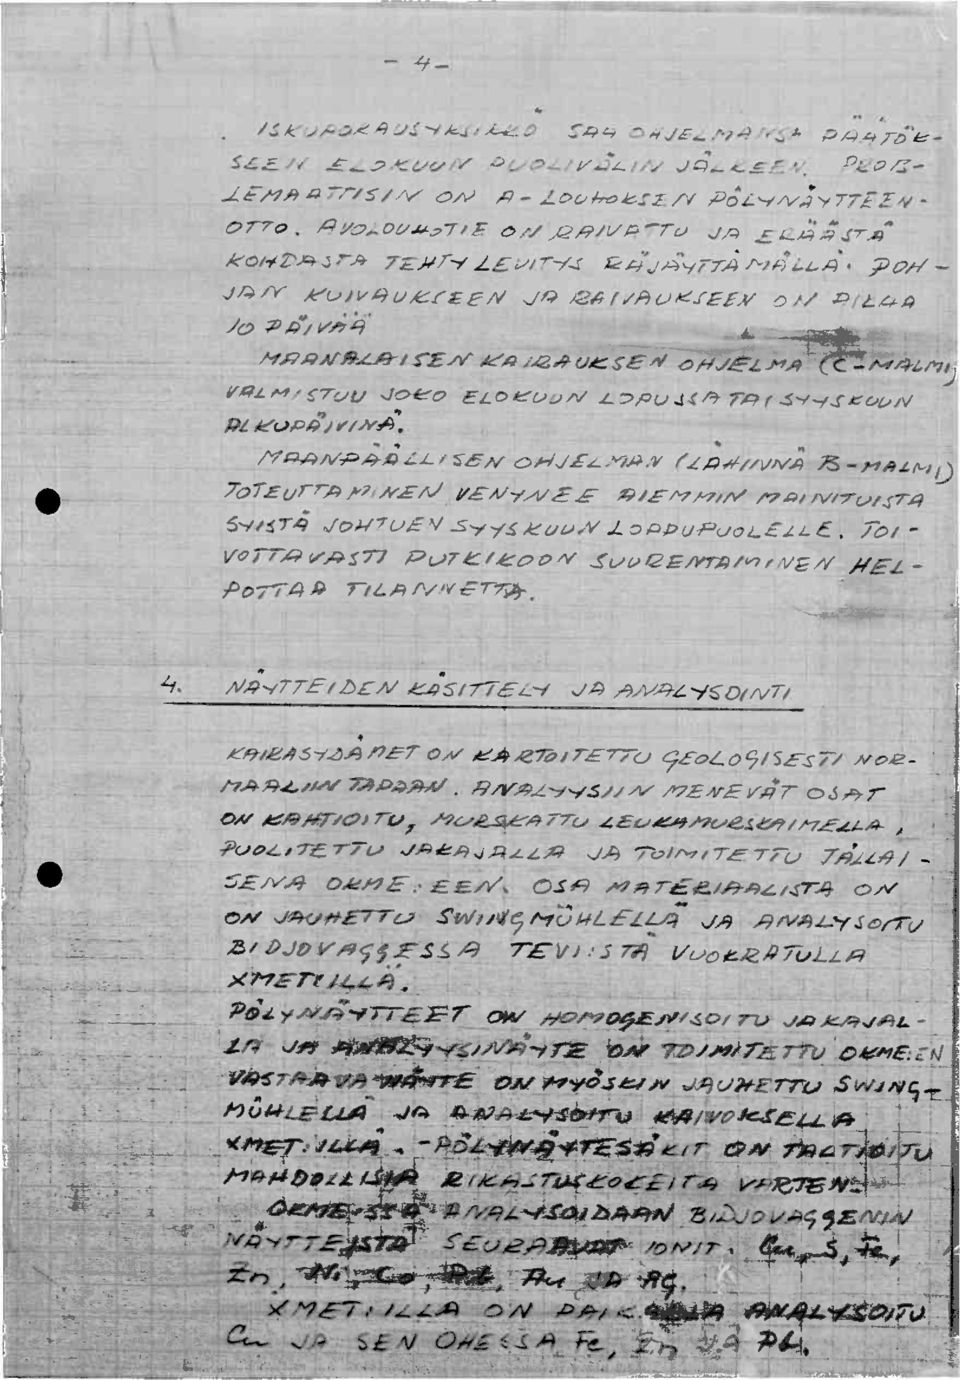 - 4 -
ISKUPORAUSYKSIKKÖ SAA OHJELMANSA PÄÄTÖK-
SEEN ELOKUUN PUOLIVÄLIN JÄLKEEN. PROB-
LEMAATTISIN ON A-LOUHOKSEN PÖLYNÄYTTEEN-
OTTO. AVOLOUHOTIE ON RAIVATTU JA ERÄÄSTÄ
KOHDASTA TEHTY LEVITYS RÄJÄYTTÄMÄLLÄ. POH-
JAN KUIVAUKSEEN JA RAIVAUKSEEN ON
10 PÄIVÄÄ
MAANALAISEN KAIRAUKSEN OHJELMA (C-MALMI)
VALMISTUU JOKO ELOKUUN LOPUSSA TAI SYYSKUUN
ALKUPÄIVINÄ.
MAANPÄÄLLISEN OHJELMAN (LÄHINNÄ B-MALMI)
TOTEUTTAMINEN VENYNEE AIEMMIN MAINITUISTA
SYISTÄ JOHTUEN SYYSKUUN LOPPUPUOLELLE. TOI-
VOTTAVASTI PUTKIKOON SUURENTAMINEN HEL-
POTTAA TILANNETTA.
4. NÄYTTEIDEN KÄSITTELY JA ANALYSOINTI
KAIRASYDÄMET ON KARTOITETTU GEOLOGISESTI NOR-
MAALIIN TAPAAN. ANALYYSIIN MENEVÄT OSAT
ON KAHTIOITU, MURSKATTU LEUKAMURSKAIMELLA,
PUOLITETTU JAKAJALLA JA TOIMITETTU TÄLLAI-
SENA OKME:EEN. OSA MATERIAALISTA ON
ON JAUHETTU SWINGMÜHLELLÄ JA ANALYSOITU
BIDJOVAGGESSA TEVI:STÄ VUOKRATULLA
XMET:ILLÄ.
PÖLYNÄYTTEET ON HOMOGENISOITU JAKAJAL-
LA JA ANALYYSINÄYTE ON TOIMITETTU OKME:EN
VASTAAVA NÄYTE ON MYÖSKIN JAUHETTU SWING-
MÜHLELLÄ JA ANALYSOITU KAIVOKSELLA
XMET:ILLÄ. - PÖLYNÄYTESÄKIT ON TALTIOITU
MAHDOLLISIA RIKASTUSKOKEITA VARTEN.
OKME:SSÄ ANALYSOIDAAN BIDJOVAGGENIN
NÄYTTEISTÄ SEURAAVAT IONIT. Cu, S, Fe,
Zn, Ni, Co, Pb, Au JA Ag.
XMET:ILLA ON PAIKALLA ANALYSOITU
Cu JA SEN OHESSA Fe, Zn JA Pb.